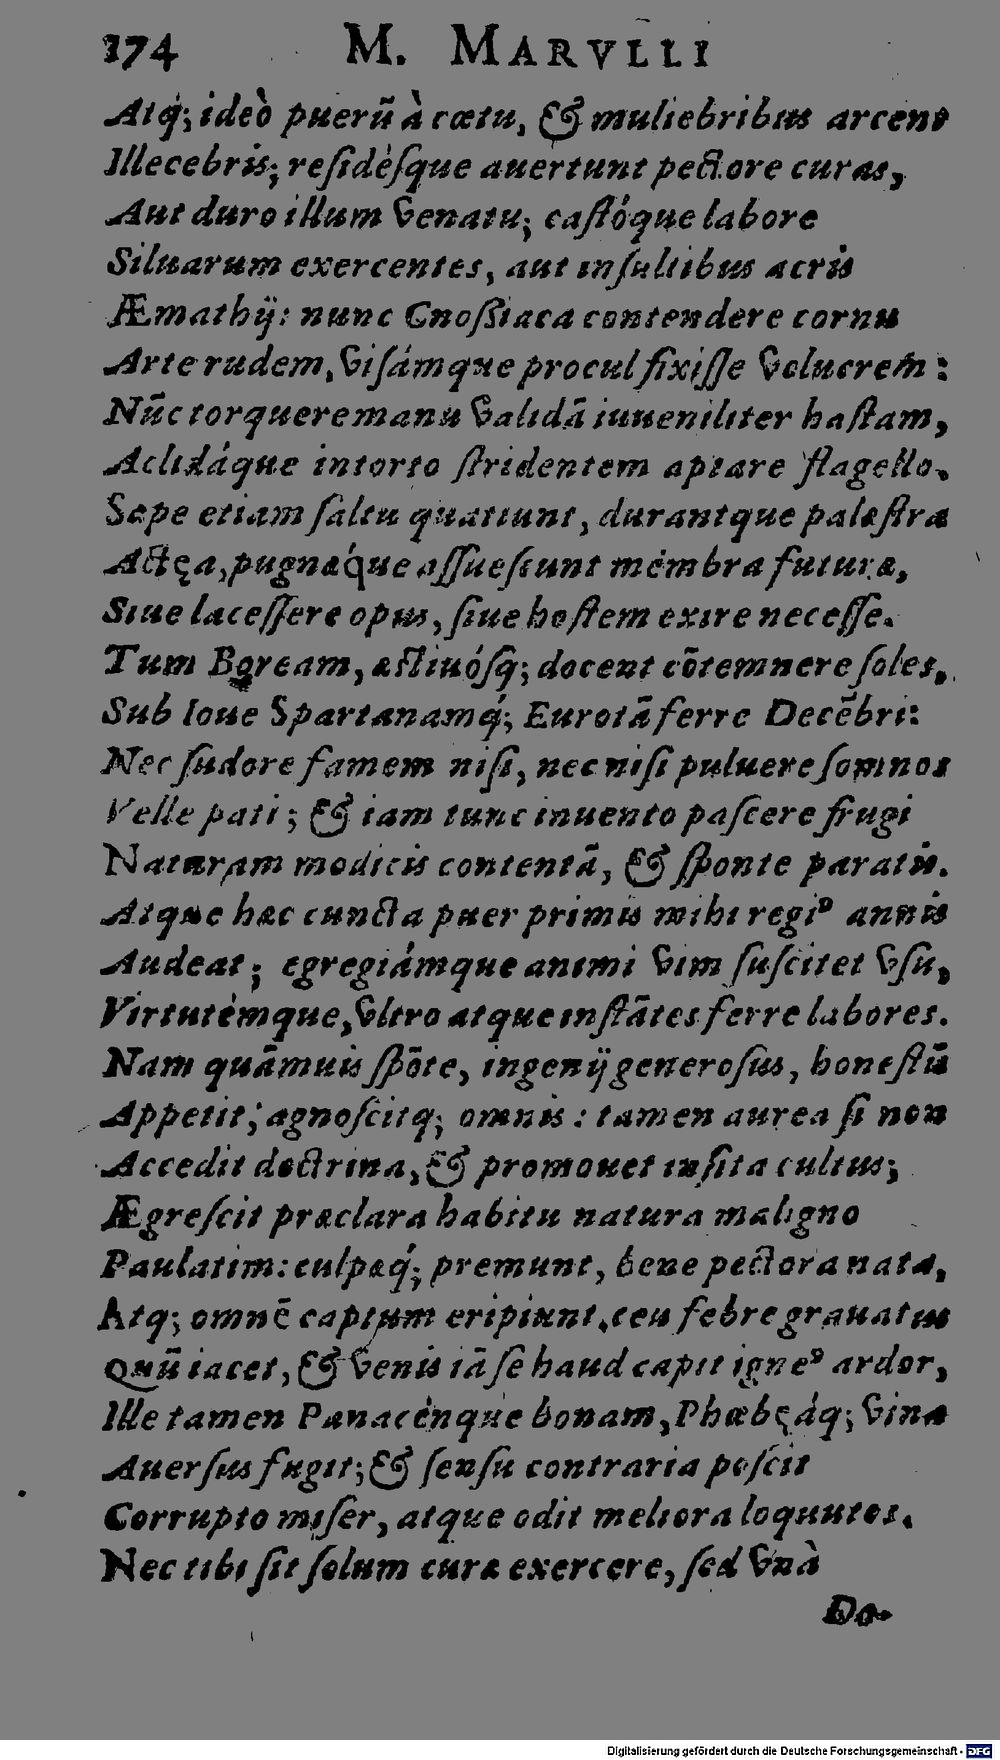 174 M. MARVLLI
Atq́; ideò puerũ à cœtu, & muliebribus arcent
Illecebris; reſidèſque auertunt pectore curas,
Aut duro illum venatu; caſtóque labore
Siluarum exercentes, aut inſultibus acris
Æmathij: nunc Gnoßiaca contendere cornu
Arte rudem, viſámque procul fixiſſe volucrem:
Nũc torquere manu validã iuueniliter haſtam,
Aclidáque intorto ſtridentem aptare flagello.
Sæpe etiam ſaltu quatiunt, durantque palæſtra
Actęa, pugnæq́ue aſſueſcunt membra futuræ,
Siue laceſſere opus, ſiue hoſtem exire neceſſe.
Tum Boream, æſtiuóſq; docent cõtemnere ſoles,
Sub Ioue Spartanamq́; Eurotã ferre Decẽbri:
Nec ſudore famem niſi, nec niſi puluere ſomnos
Velle pati; & iam tunc inuento paſcere frugi
Naturam modicis contentã, & ſponte paratis.
Atque hæc cuncta puer primis mihi regiꝰ annis
Audeat; egregiámque animi vim ſuſcitet vſu,
Virtutémque, vltro atque inſtãtes ferre labores.
Nam quãmuis ſpõte, ingenij generoſus, honeſtũ
Appetit; agnoſcitq; omnis: tamen aurea ſi non
Accedit doctrina, & promouet inſita cultus;
Ægreſcit præclara habitu natura maligno
Paulatim: culpæq́; premunt, bene pectora nata,
Atq; omnẽ captum eripiunt. ceu febre grauatus
Quũ iacet, & venis iã ſe haud capit igneꝰ ardor,
Ille tamen Panacènque bonam, Phœbęáq; vina
Auerſus fugit; & ſenſu contraria poſcit
Corrupto miſer, atque odit meliora loquutos.
Nec tibi ſit ſolum curæ exercere, ſed vnà
Do-
Digitalisierung gefördert durch die Deutsche Forschungsgemeinschaft - DFG